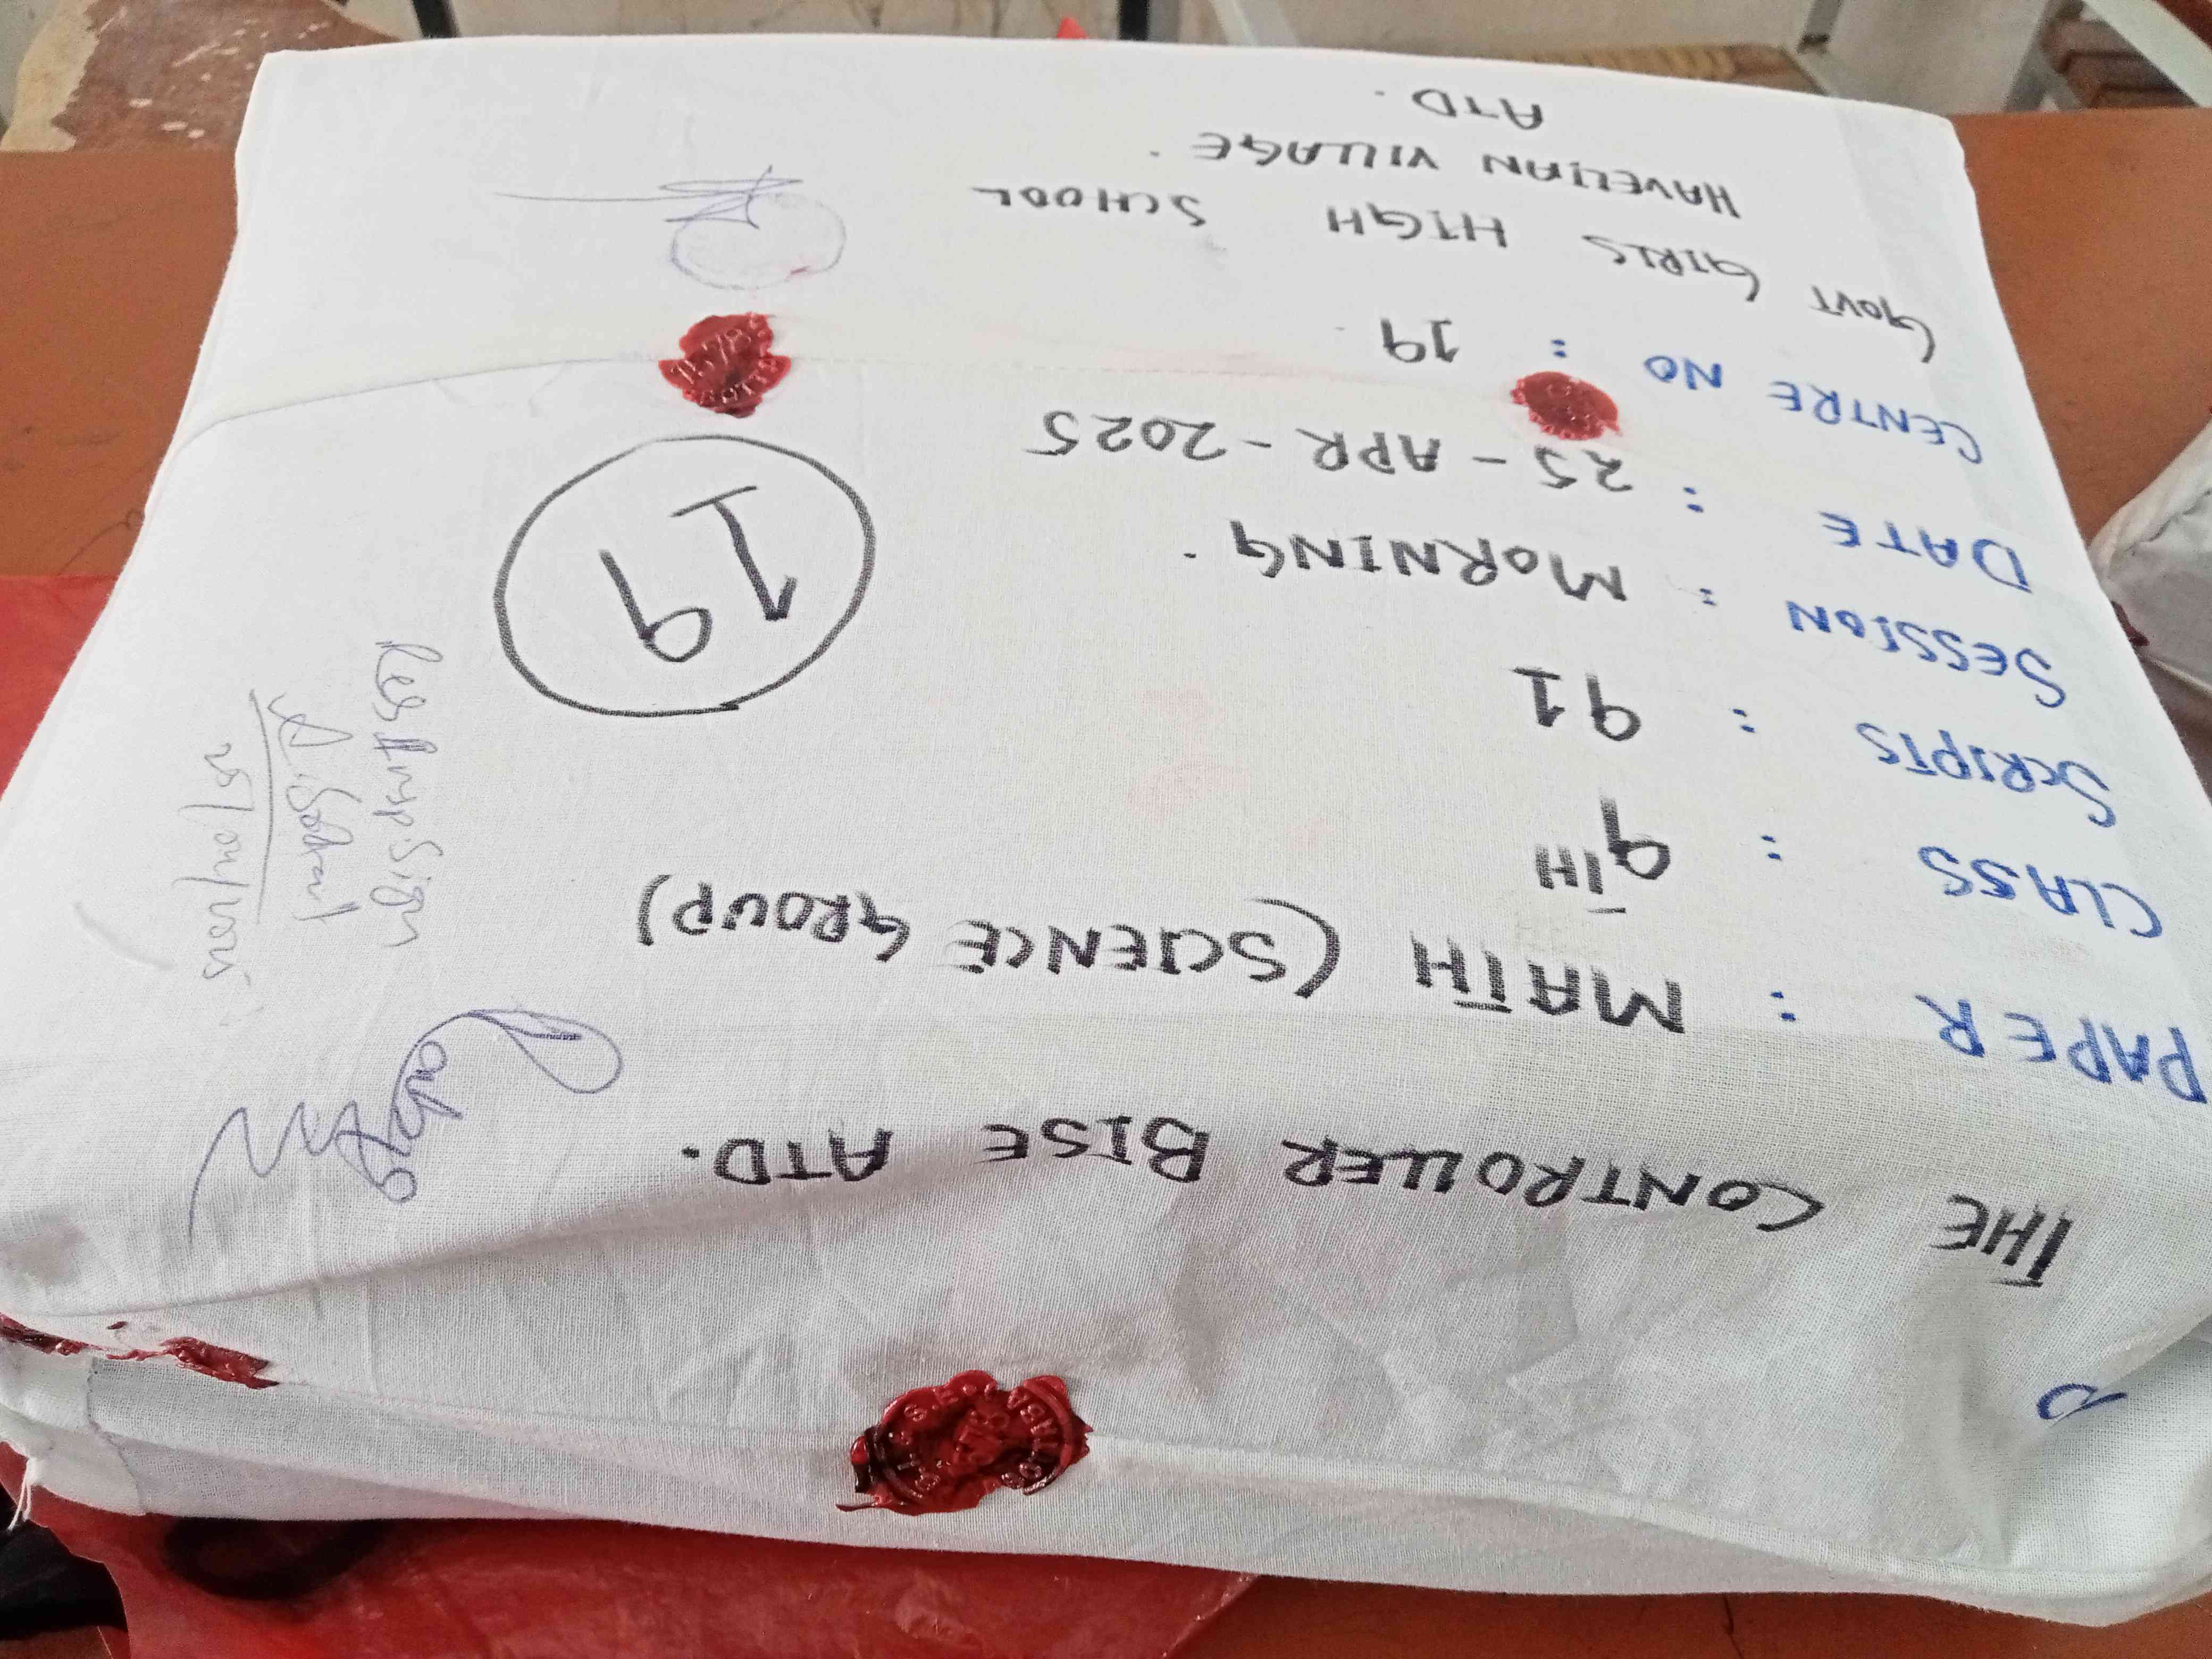 THE CONTROLLER BISE ATD.
PAPER : MATH (SCIENCE GROUP)
CLASS : 9TH
SCRIPTS : 91
SESSION : MORNING.
DATE : 25-APR-2025
CENTRE NO : 19
GOVT GIRLS HIGH SCHOOL
HAVELIAN VILLAGE.
ATD.
19
Sign